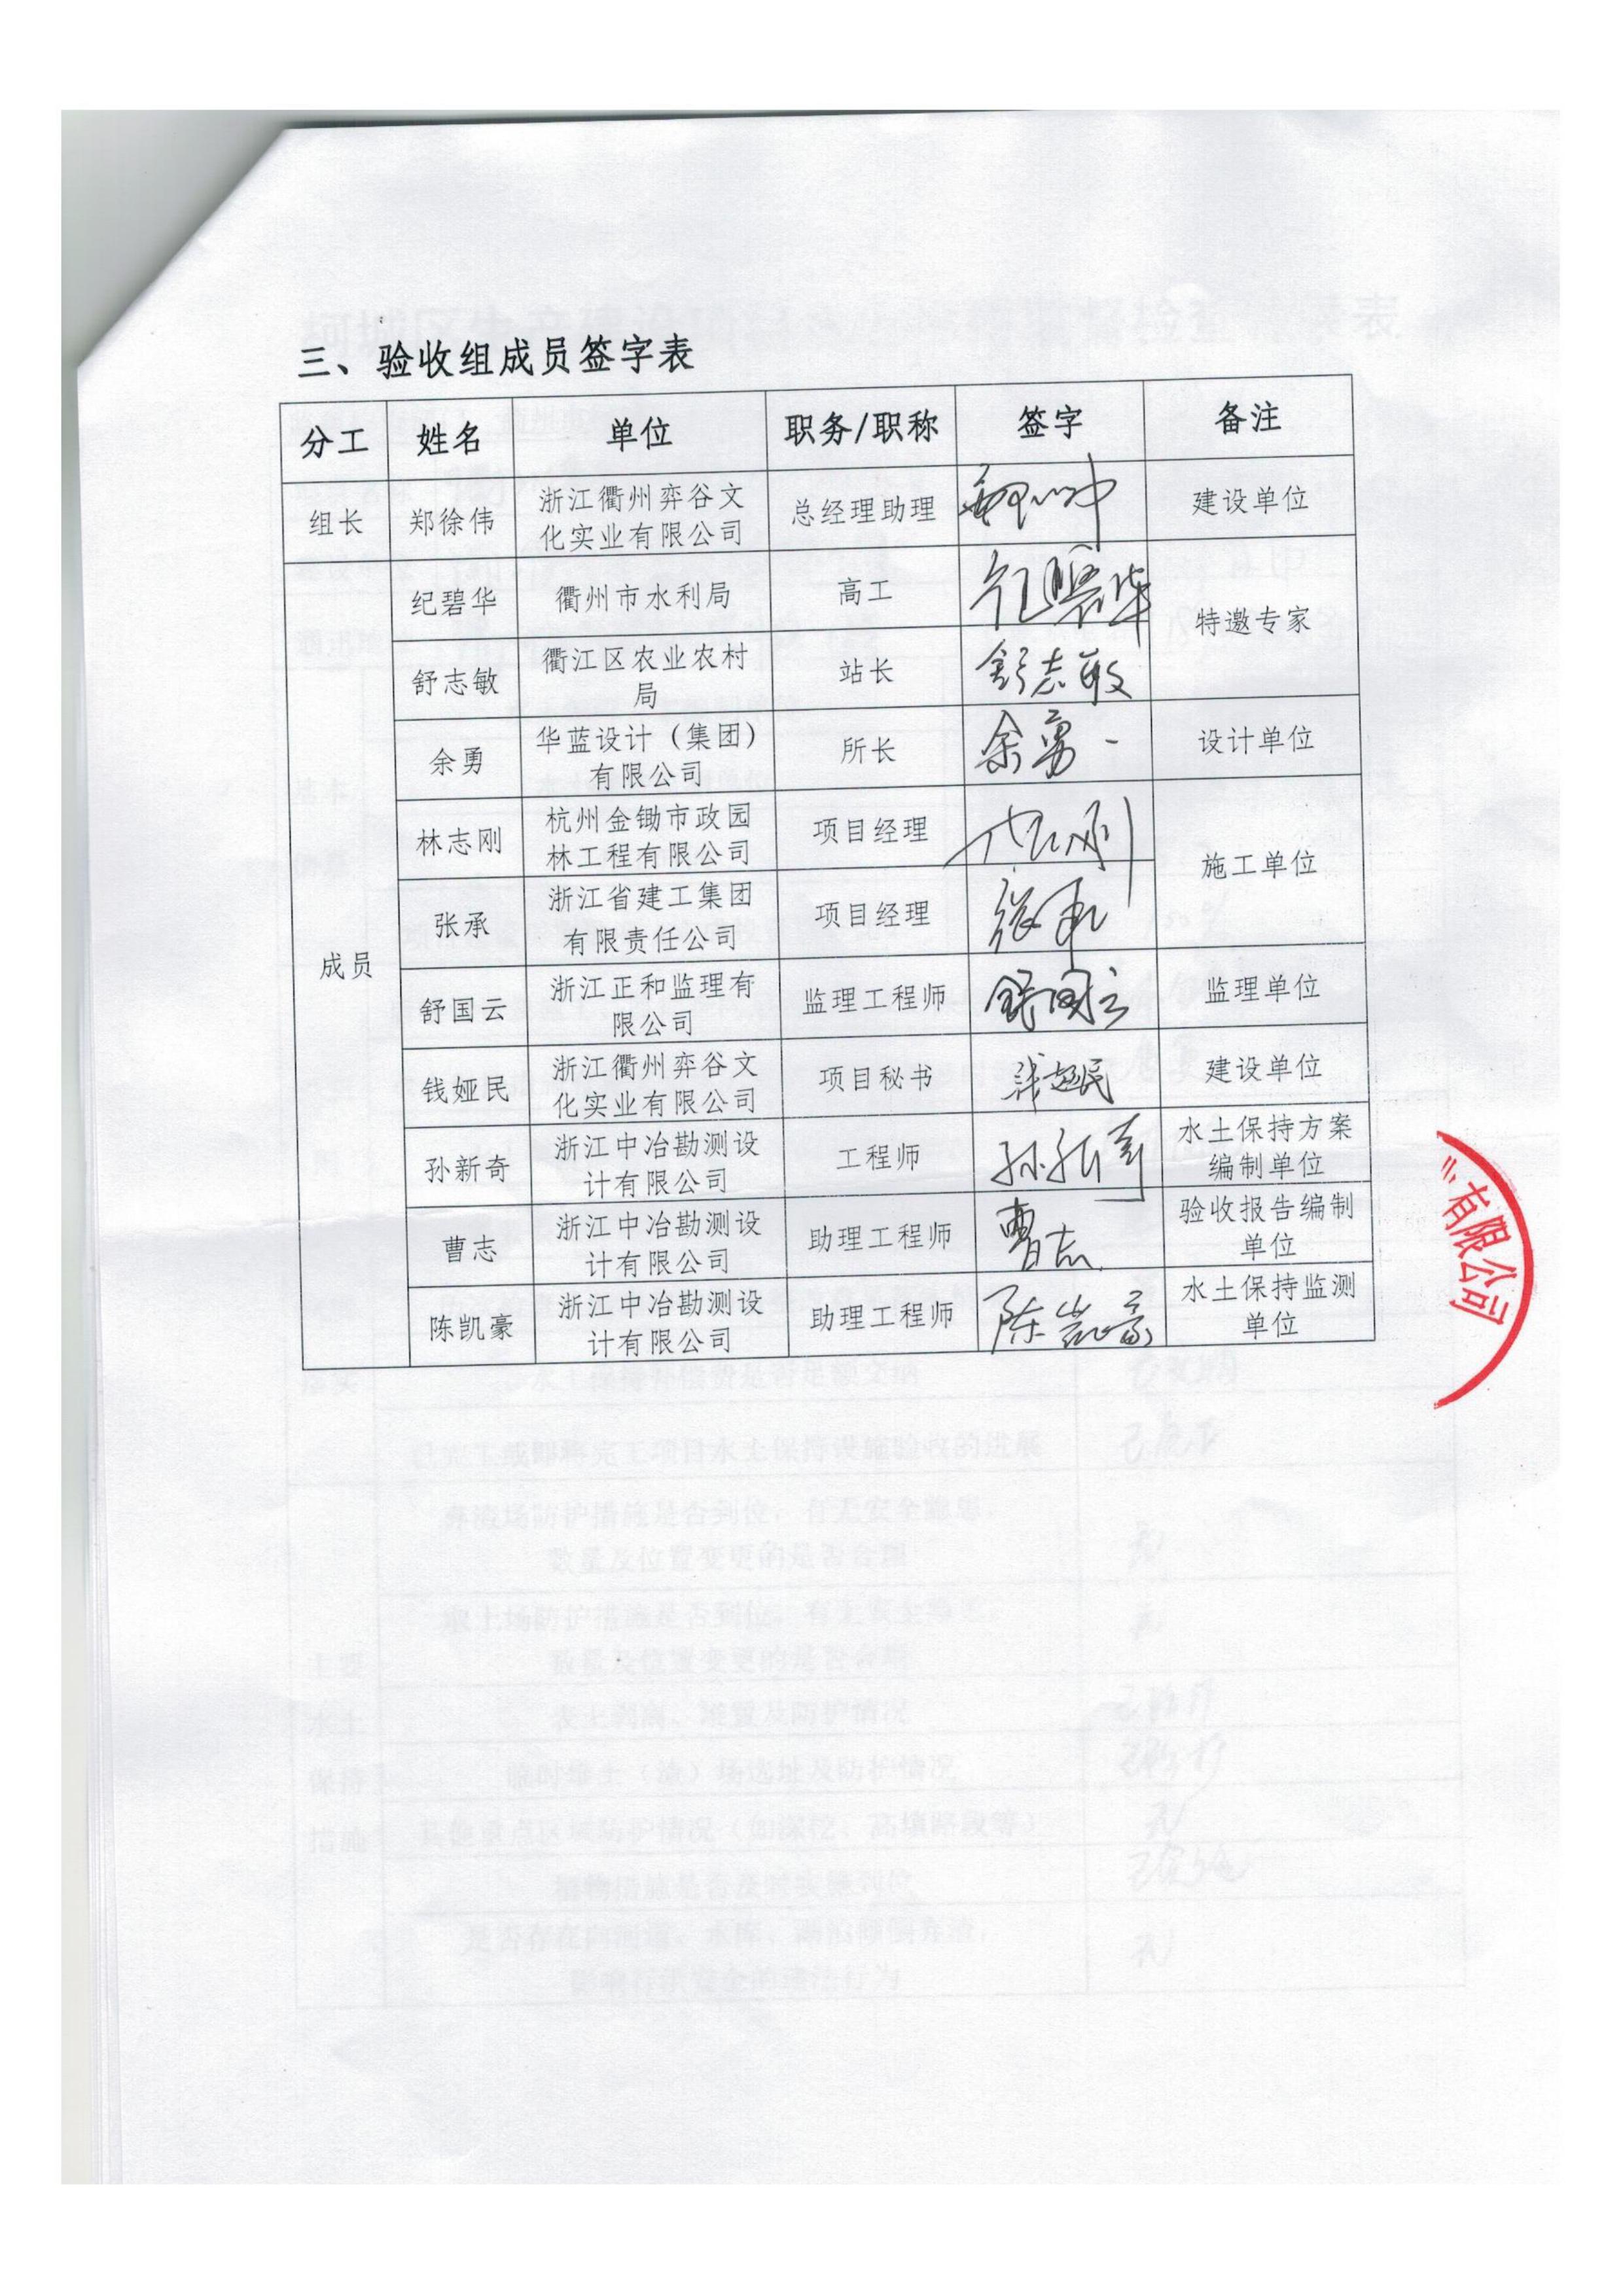 三、验收组成员签字表
分工 姓名 单位 职务/职称 签字 备注
组长 郑徐伟 浙江衢州弈谷文 总经理助理 建设单位
化实业有限公司
成员
纪碧华 衢州市水利局 高工 纪碧华 特邀专家
舒志敏 衢江区农业农村 站长 舒志敏
局
余勇 华蓝设计（集团） 所长 余勇 设计单位
有限公司
林志刚 杭州金锄市政园 项目经理 施工单位
林工程有限公司
张承 浙江省建工集团 项目经理 张承
有限责任公司
舒国云 浙江正和监理有 监理工程师 舒国云 监理单位
限公司
钱娅民 浙江衢州弈谷文 项目秘书 建设单位
化实业有限公司
孙新奇 浙江中冶勘测设 工程师 孙新奇 水土保持方案
计有限公司 编制单位
曹志 浙江中冶勘测设 助理工程师 曹志 验收报告编制
计有限公司 单位
陈凯豪 浙江中冶勘测设 助理工程师 陈凯豪 水土保持监测
计有限公司 单位
有限公司